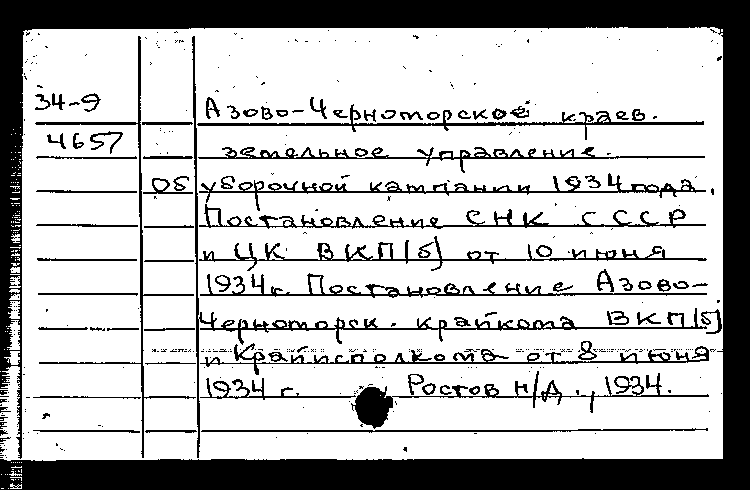 34-9
Азово-Черноморское краев.
4657
земельное управление.
Об уборочной кампании 1934 года.
Постановление СНК СССР
и ЦК ВКП(б) от 10 июня
1934г. Постановление Азово-
Черноморск. крайкома ВКП(б)
и Крайисполкома от 8 июня
1934 г. Ростов н/Д., 1934.